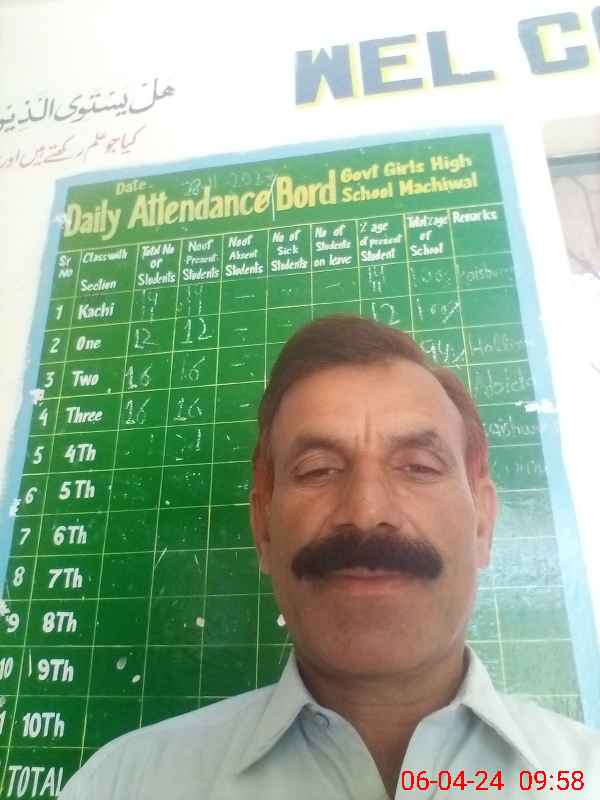 WELC
هَلْ يَسْتَوِى الَّذِيْن
کیا جو علم رکھتے ہیں اور
Date. 28-11-2023
Daily Attendance Bord Govt Girls High
School Machiwal
Sr No Class with Section Total No or Students No of Present Students No of Absent Students No of Sick Students No of Students on leave % age of present Student Total % age of School Remarks
1 Kachi
2 One 12 12 - 12
3 Two 16 16 - 94%
4 Three 16 16 -
5 4Th
6 5Th
7 6Th
8 7Th
9 8Th
10 9Th
10Th
TOTAL
06-04-24 09:58